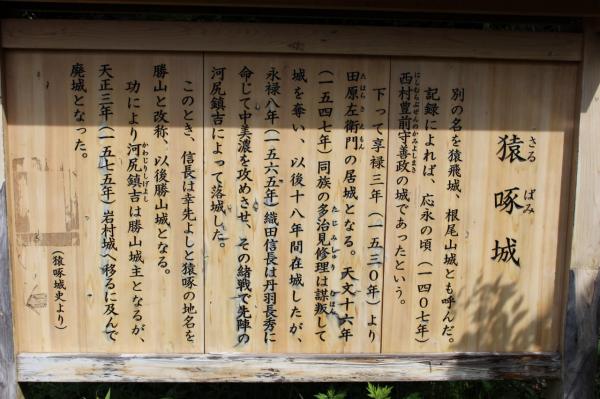 猿啄城
さる ばみ
別の名を猿飛城、根尾山城とも呼んだ。
記録によれば、応永の頃（一四〇七年）
西村豊前守善政の城であったという。
にしむらぶぜんのかみよしまさ
下って享禄三年（一五三〇年）より
田原左衛門の居城となる。天文十六年
たはらさえもん
（一五四七年）同族の多治見修理は謀叛して
たじみしゅり むほん
城を奪い、以後十八年間在城したが、
永禄八年（一五六五年）織田信長は丹羽長秀に
命じて中美濃を攻めさせ、その緒戦で先陣の
河尻鎮吉によって落城した。
このとき、信長は幸先よしと猿啄の地名を
勝山と改称、以後勝山城となる。
功により河尻鎮吉は勝山城主となるが、
かわじりしげよし
天正三年（一五七五年）岩村城へ移るに及んで
廃城となった。
（猿啄城史より）